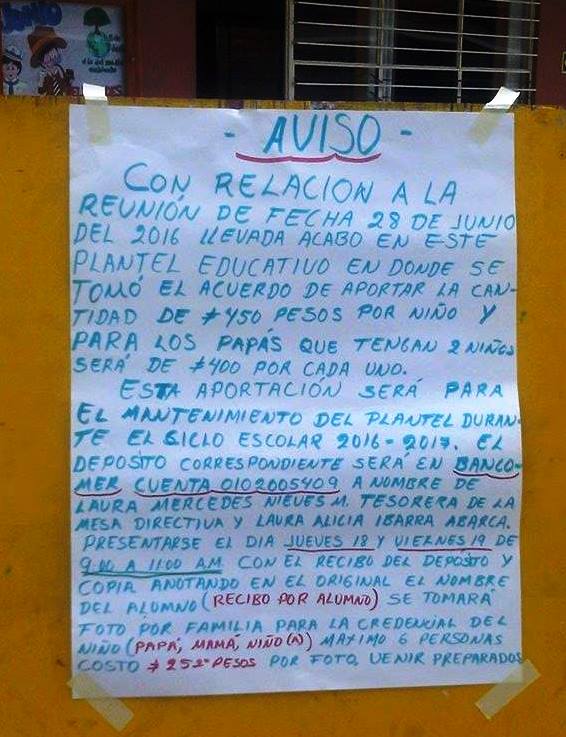 JUNIO
- AVISO -
CON RELACION A LA
REUNIÓN DE FECHA 28 DE JUNIO
DEL 2016 LLEVADA ACABO EN ESTE
PLANTEL EDUCATIVO EN DONDE SE
TOMÓ EL ACUERDO DE APORTAR LA CAN-
TIDAD DE $450 PESOS POR NIÑO Y
PARA LOS PAPÁS QUE TENGAN 2 NIÑOS
SERÁ DE $400 POR CADA UNO.
ESTA APORTACIÓN SERÁ PARA
EL MANTENIMIENTO DEL PLANTEL DURAN-
TE EL CICLO ESCOLAR 2016-2017. EL
DEPOSITO CORRESPONDIENTE SERÁ EN BANCO-
MER CUENTA 0102005409 A NOMBRE DE
LAURA MERCEDES NIEVES M. TESORERA DE LA
MESA DIRECTIVA Y LAURA ALICIA IBARRA ABARCA.
PRESENTARSE EL DIA JUEVES 18 Y VIERNES 19 DE
9:00 A 11:00 AM CON EL RECIBO DEL DEPÓSITO Y
COPIA ANOTANDO EN EL ORIGINAL EL NOMBRE
DEL ALUMNO (RECIBO POR ALUMNO) SE TOMARÁ
FOTO POR FAMILIA PARA LA CREDENCIAL DEL
NIÑO (PAPÁ, MAMÁ, NIÑO(A) MAXIMO 6 PERSONAS
COSTO $25.00 PESOS POR FOTO, VENIR PREPARADOS